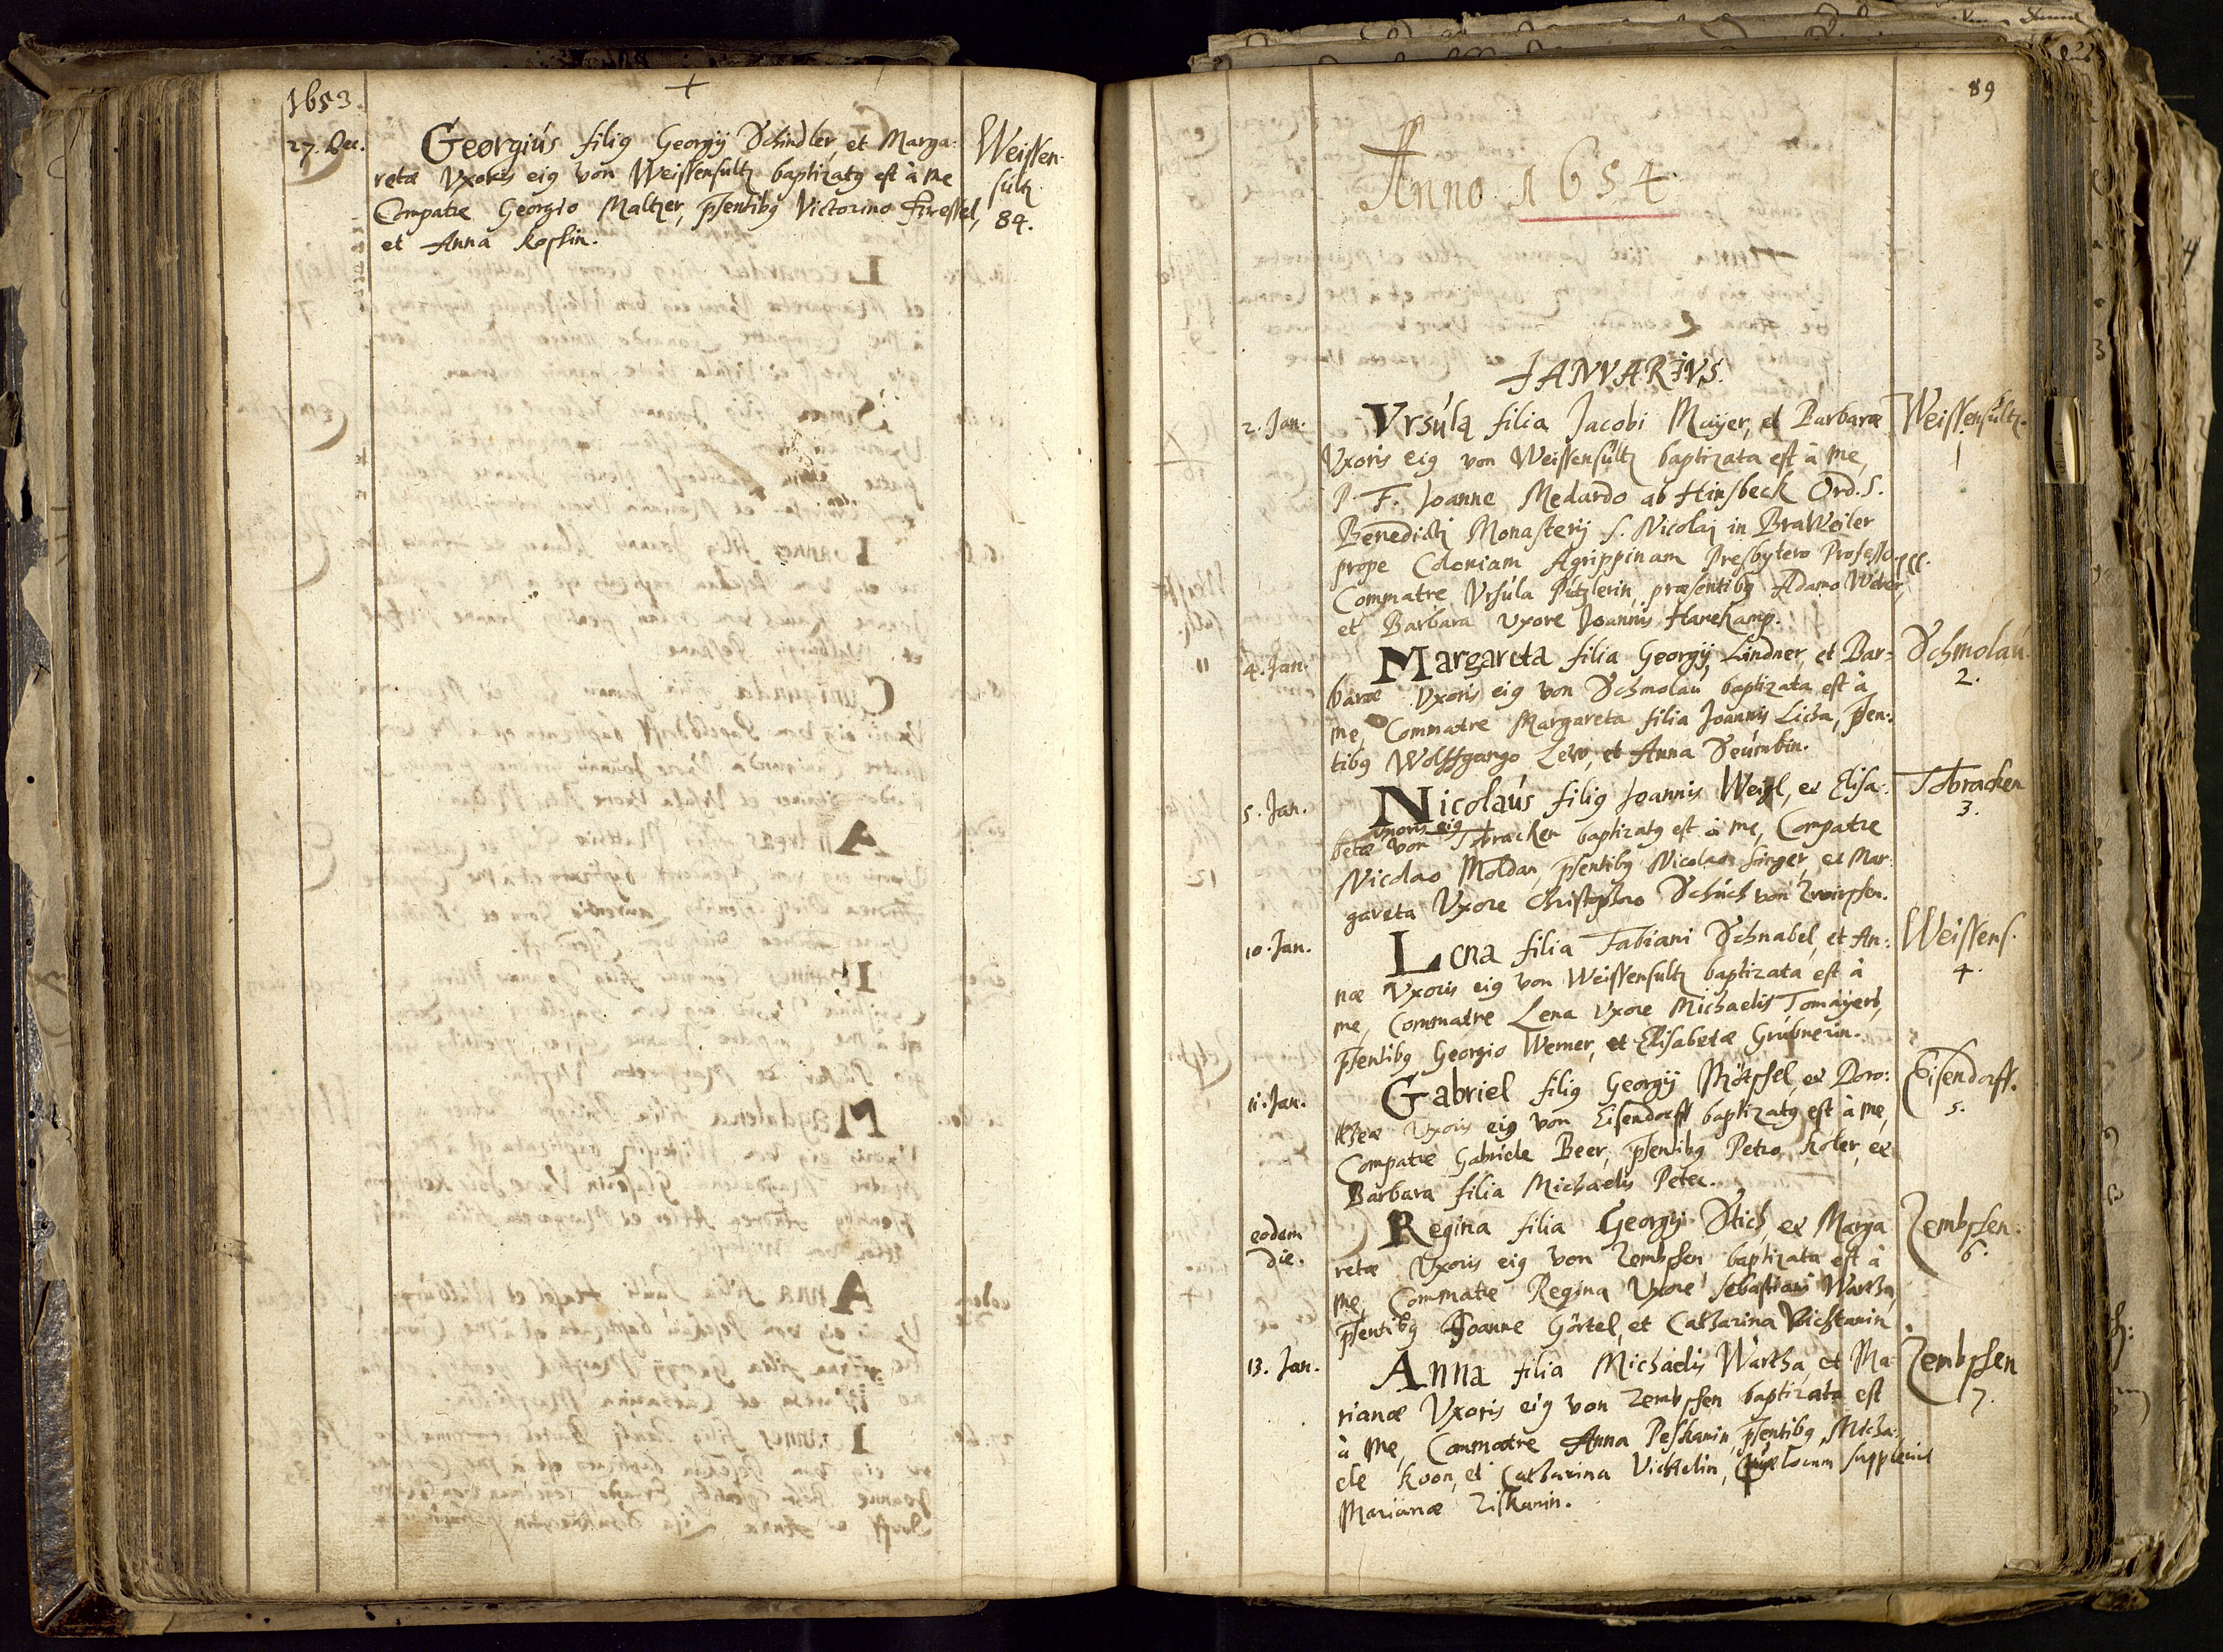 1653.
27. Dec.
Georgius filiꝰ Georgij Schindler, et Marga-
retæ Vxoris eiꝰ von Weissensultz baptizatꝰ est à me
Compatre Georgio Maltzer, p̄sentibꝰ Victorino Fressel,
et Anna Koslin.
Weissen-
sultz
84.
89
Anno 1654.
IANVARIVS.
2. Jan.
Vrsula filia Jacobi Mayer, et Barbaræ
Vxoris eiꝰ von Weissensultz baptizata est à me,
P. F. Joanne Medardo ab Hinsbeck Ord. S.
Benedicti Monasterij S. Nicolai in BraWeiler
prope Coloniam Agrippinam Presbytero Professo
Commatre Vrsula Putzlerin, præsentibꝰ Adamo Weber,
et Barbara Vxore Joannis
Weissensultz.
1
4. Jan.
Margareta filia Georgij Lindner, et Bar-
baræ Vxoris eiꝰ von Schmolau baptizata est à
me, Commatre Margareta filia Joannis Licha, p̄sen-
tibꝰ Wolffgango Lew, et Anna
Schmolau.
2.
5. Jan.
Nicolaus filiꝰ Joannis Weigl, et Elisa-
betæ vxoris eiꝰ von baptizatꝰ est à me, Compatre
Nicolao Moldan, p̄sentibꝰ Nicolao Singer, et Mar-
gareta Vxore Christophoro Schuch von
3.
10. Jan.
Lena filia Fabiani Schnabel, et An-
næ Vxoris eiꝰ von Weissensultz baptizata est à
me, Commatre Lena Vxore Michaelis Tomayers,
p̄sentibꝰ Georgio Werner, et Elisabetæ Grubnerin.
Weissens.
4.
11. Jan.
Gabriel filiꝰ Georgij et Doro-
theæ Vxoris eiꝰ von Eisendorff baptizatꝰ est à me,
Compatre Gabriele Beer, p̄sentibꝰ Petro Koler, et
Barbara filia Michaelis Peter.
Eisendorff.
5.
eodem
die.
Regina filia Georgij Stich, et Marga
retæ Vxoris eiꝰ von Zembschen baptizata est à
me, Commatre Regina Vxore Sebastiani Wartha,
p̄sentibꝰ Joanne Görtel, et Catharina
Zembschen.
6.
13. Jan.
Anna filia Michaelis Wartha, et Ma-
rianæ Vxoris eiꝰ von Zembschen baptizata est
à me, Commatre Anna Peshanin, p̄sentibꝰ Micha-
ele Koon, et Catharina locum suppleuit
Marianæ Zishanin.
Zembschen
7.